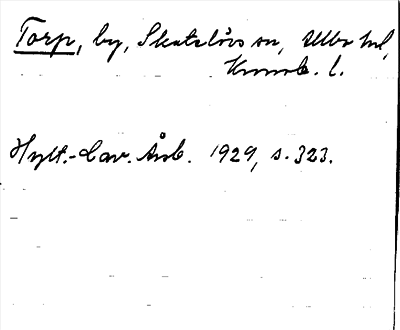 Torp, by, Skatelövs sn, Allbo hd,
Kronob. l.
Hylt.-Cav. Årsb. 1929, s. 323.